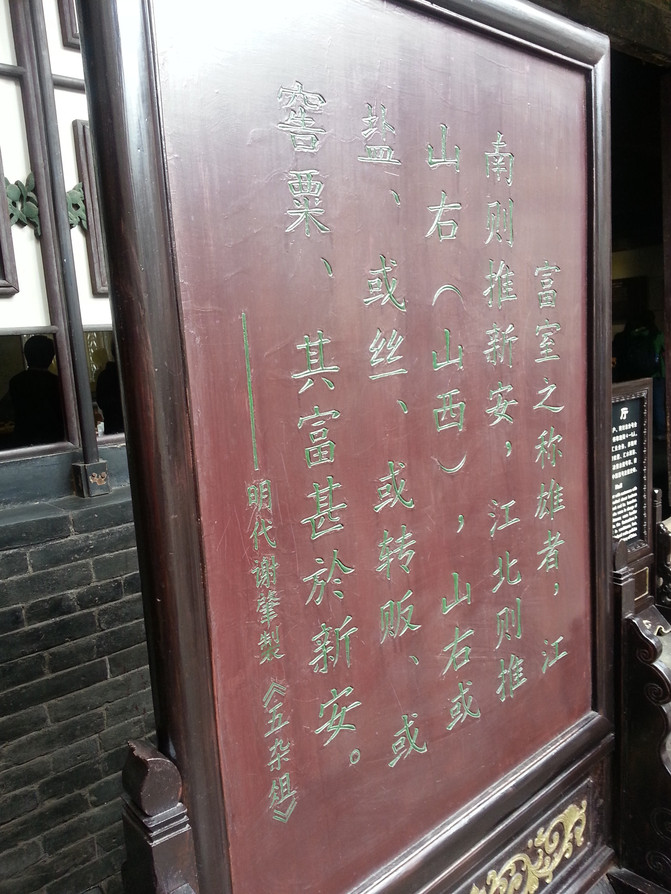 富室之称雄者，江
南则推新安，江北则推
山右（山西），山右或
盐、或丝、或转贩、或
窖粟、其富甚於新安。
——明代谢肇製《五杂俎》
厅